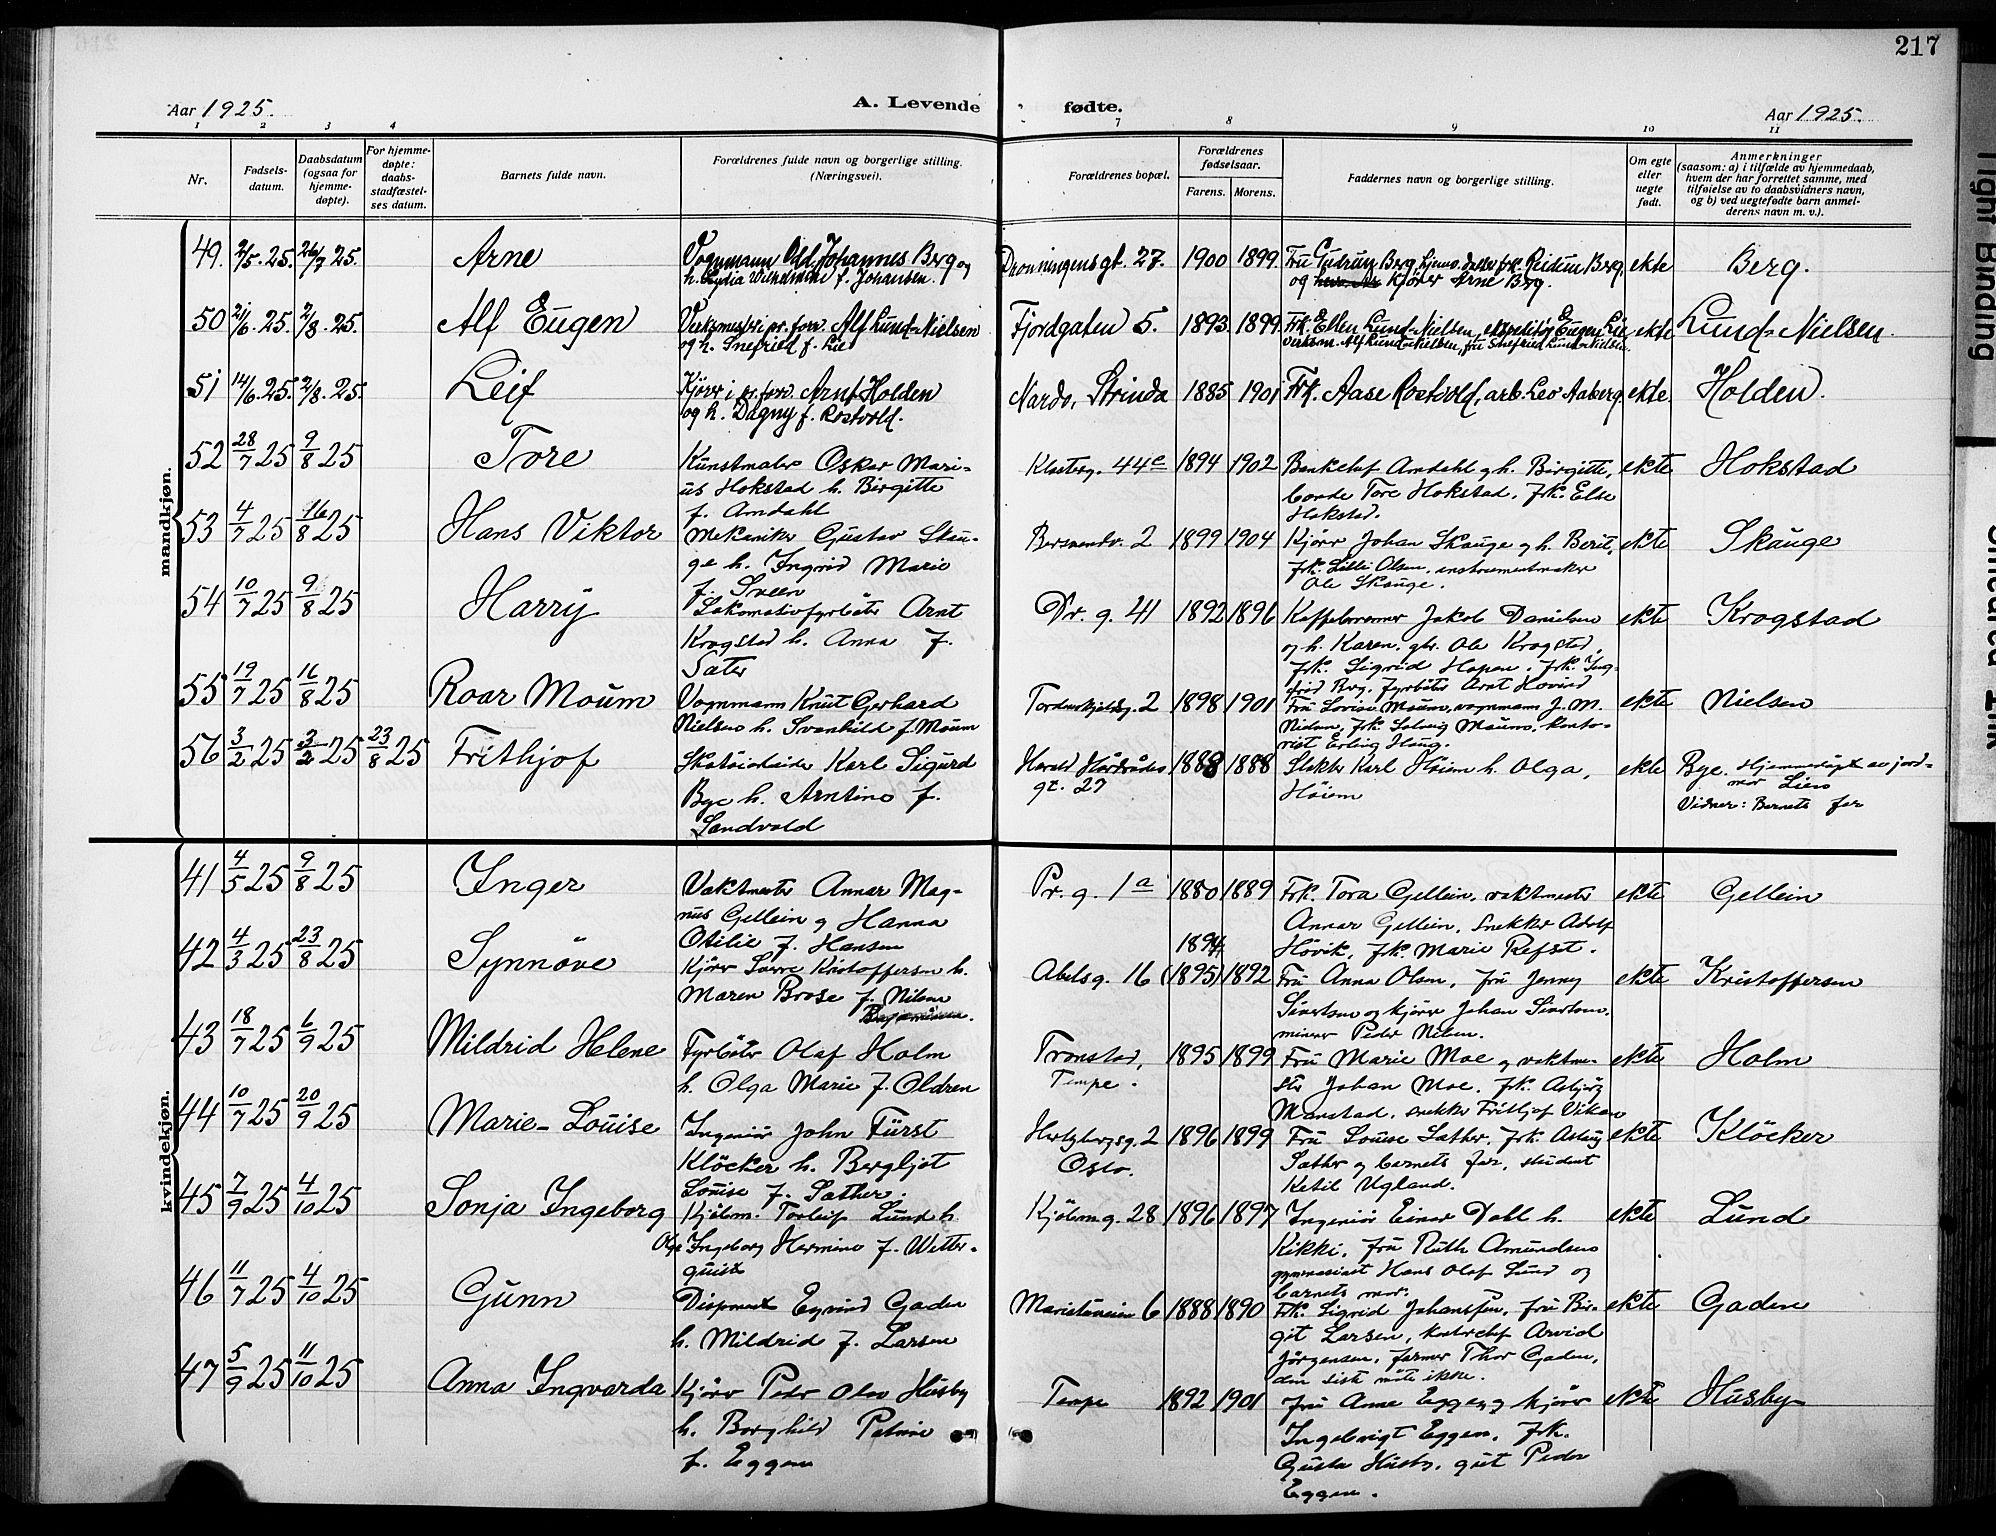 217
Aar 1925.
A. Levende fødte.
Aar 1925.
1 2 3 4 7 8 9 10 11
Nr.
Fødsels-
datum.
Daabsdatum
(ogsaa for
hjemme-
døpte).
For hjemme-
døpte:
daabs-
stadfæstel-
ses datum.
Barnets fulde navn.
Forældrenes fulde navn og borgerlige stilling.
(Næringsvei).
Forældrenes bopæl.
Forældrenes
fødselsaar.
Farens. Morens.
Faddernes navn og borgerlige stilling.
Om egte
eller
uegte
født.
Anmerkninger
(saasom: a) i tilfælde av hjemmedaab,
hvem der har forrettet samme, med
tilføielse av to daabsvidners navn,
og b) ved uegtefødte barn anmel-
derens navn m. v.).
mandkjøn.
49. 2/5. 25. 26/7 25. Arne
Vognmann Odd Johannes Berg og
h. Lydia f. Johansen.
Dronningensgt. 27. 1900 1899
Fru Gudrun Berg, frk. Reidun Berg
og Kjører Arne Berg.
ekte Berg.
50 21/6. 25. 2/8. 25. Alf Eugen
Alf Lund-Nielsen
og h. Snefried f. Lie
Fjordgaten 5. 1893 1899
Frk. Ellen Lund-Nielsen, ekspeditør Eugen Lie
Alf Lund-Nielsen, fru Snefried Lund-Nielsen.
ekte Lund-Nielsen.
51 14/6. 25. 2/8. 25. Leif
Kjører i pr. forr. Arnt Holden
og h. Dagny f. Rostvold.
Nardo, Strinda 1885 1901
Frk. Aase Rostvold, arb. Leo Aaberg
ekte. Holden.
52 28/7 25 9/8 25 Tore
Kunstmaler Oskar Mari-
us Hokstad h. Birgitte
f. Amdahl
Klosterg. 44c 1894 1902
Bankchef Amdahl og h. Birgitte,
Tore Hokstad, frk. Else
Hokstad.
ekte Hokstad
53 4/7 25 16/8 25 Hans Viktor
Mekaniker Gustav Skau-
ge h. Ingrid Marie
f. Sveen
Bersvendv. 2 1899 1904
Kjører Johan Skauge og h. Berit,
frk. Lilli Olsen, instrumentmaker
Ole Skauge.
ekte Skauge
54 10/7 25 9/8 25 Harry
Lokomotivfyrbøter Arnt
Krogstad h. Anna f.
Sæter
Dr. g. 41 1892 1896
Jakob Danielsen
og h. Karen, gbr. Ole Krogstad,
frk. Sigrid Hopen, frk. Ing-
frid Berg, fyrbøter Arnt Hovind
ekte Krogstad
55 19/7 25 16/8 25 Roar Moum
Vognmann Knut Gerhard
Nielsen h. Svanhild f. Moum
Tordenskjoldsg. 2 1898 1901
Fru Lovise Moum, vognmann J. M.
frk. Solveig Moum, konto-
rist Erling Haug.
ekte Nielsen
56 3/2 25 3/2 25 23/8 25 Frithjof
Skotøiarbeider Karl Sigurd
Bye h. Arntine f.
Sandvold
Harald Hårdrådes
gt. 27
1888 1888
Slakter Karl Høiem h. Olga,
Høiem
ekte Bye. Hjemmedøpt av jord-
mor Lien
Vidner: Barnets far
kvindekjøn.
41 4/5 25 9/8 25 Inger
Vaktmester Annar Mag-
nus Gellein og Hanna
Otilie f. Hansen
Pr. g. 1a 1880 1889
Frk. Tora Gellein, vaktmester
Annar Gellein, snekker Adolf
Høvik, frk. Marie Refst.
ekte Gellein
42 4/3 25 23/8 25 Synnöve
Kjører Sverre Kristoffersen h.
Maren Brose f. Nilsen
Abelsg. 16 1894 (1895) 1892
Fru Anna Olsen, fru Jenny
Sivertsen og kjører Johan Sivertsen,
minerer Peder Nilsen.
ekte Kristoffersen
43 18/7 25 6/9 25 Mildrid Helene
Fyrbøter Olaf Holm
h. Olga Marie f. Oldren
Tronstad,
Tempe.
1895 1899
Fru Marie Moe og vaktme-
ster Johan Moe, frk. Asbjørg
Monstad, snekker Frithjof Vikan
ekte Holm
44 10/7 25 20/9 25 Marie-Louise
Ingeniør John Fürst
Klöcker h. Bergljot
Louise f. Sæther.
Hertzbergsg. 2
Oslo.
1896 1899
Fru Louise Sæther, frk. Aslaug
Sæther og barnets far, student
Ketil Ugland.
ekte Klöcker
45 7/9 25 4/10 25 Sonja Ingeborg
Kjøbm. Torleif Lund h.
Olga Ingeborg Hermine f. Wetter-
quist
Kjøbmg. 28 1896 1897
Ingeniør Einar Dahl h.
Kikki, fru Ruth Amundsen
gymnasiast Hans Olaf Lund og
barnets mor.
ekte Lund
46 11/7 25 4/10 25 Gunn
Disponent Eyvind Gaden
h. Mildrid f. Larsen
6 1888 1890
Frk. Sigrid Johanssen, fru Bir-
git Larsen, kontorchef Arvid
Jörgensen, farmer Thor Gaden,
den siste møtte ikke.
ekte Gaden
47 5/9 25 11/10 25 Anna Ingvarda
Kjører Peder Olav Husby
h. Borghild Petrine
f. Eggen
Tempe 1892 1901
Fru Anne Eggen og kjører
Ingebrigt Eggen, frk.
Gusta Husby, gut Peder
Eggen.
ekte Husby
Tight Binding